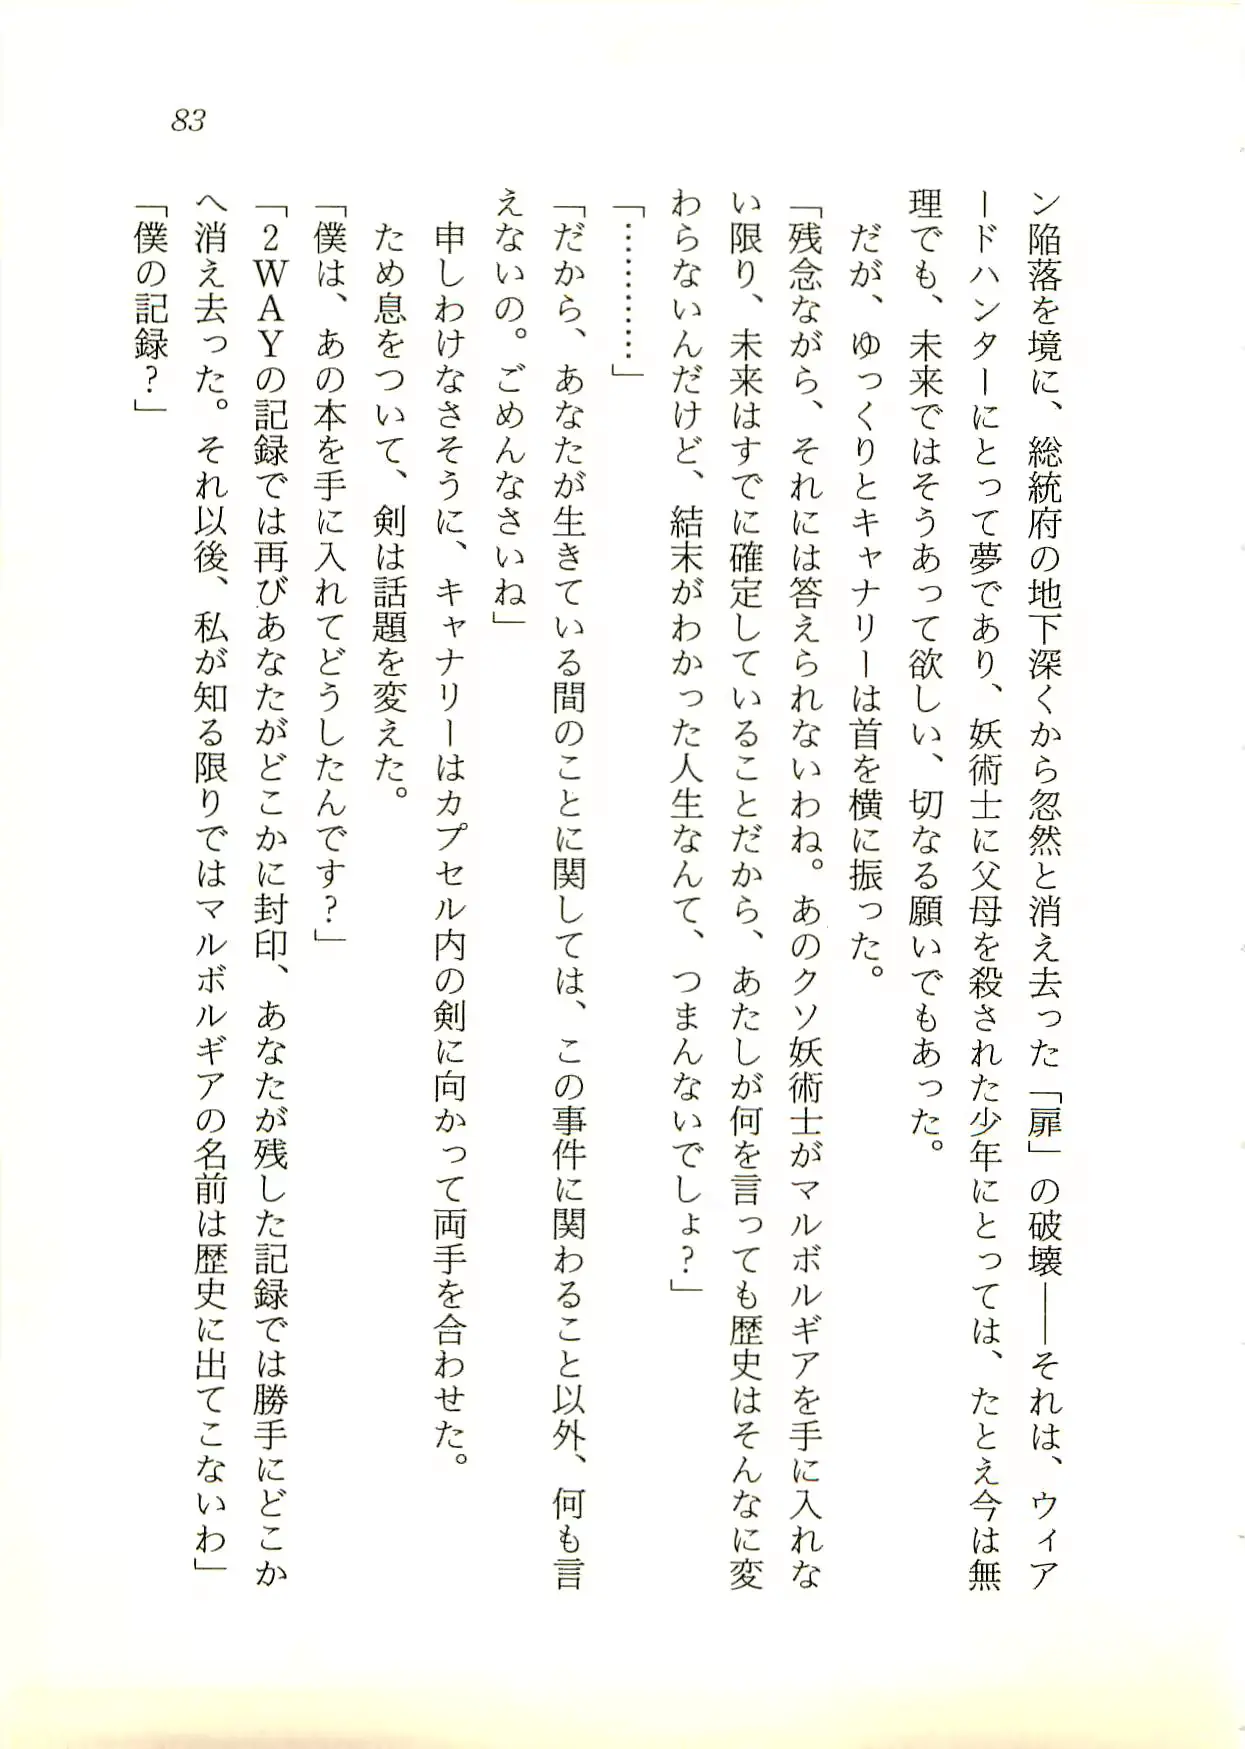 83
ン陥落を境に、総統府の地下深くから忽然と消え去った「扉」の破壊――それは、ウィア
ードハンターにとって夢であり、妖術士に父母を殺された少年にとっては、たとえ今は無
理でも、未来ではそうあって欲しい、切なる願いでもあった。
だが、ゆっくりとキャナリーは首を横に振った。
「残念ながら、それには答えられないわね。あのクソ妖術士がマルボルギアを手に入れな
い限り、未来はすでに確定していることだから、あたしが何を言っても歴史はそんなに変
わらないんだけど、結末がわかった人生なんて、つまんないでしょ？」
「…………」
「だから、あなたが生きている間のことに関しては、この事件に関わること以外、何も言
えないの。ごめんなさいね」
申しわけなさそうに、キャナリーはカプセル内の剣に向かって両手を合わせた。
ため息をついて、剣は話題を変えた。
「僕は、あの本を手に入れてどうしたんです？」
「２ＷＡＹの記録では再びあなたがどこかに封印、あなたが残した記録では勝手にどこか
へ消え去った。それ以後、私が知る限りではマルボルギアの名前は歴史に出てこないわ」
「僕の記録？」